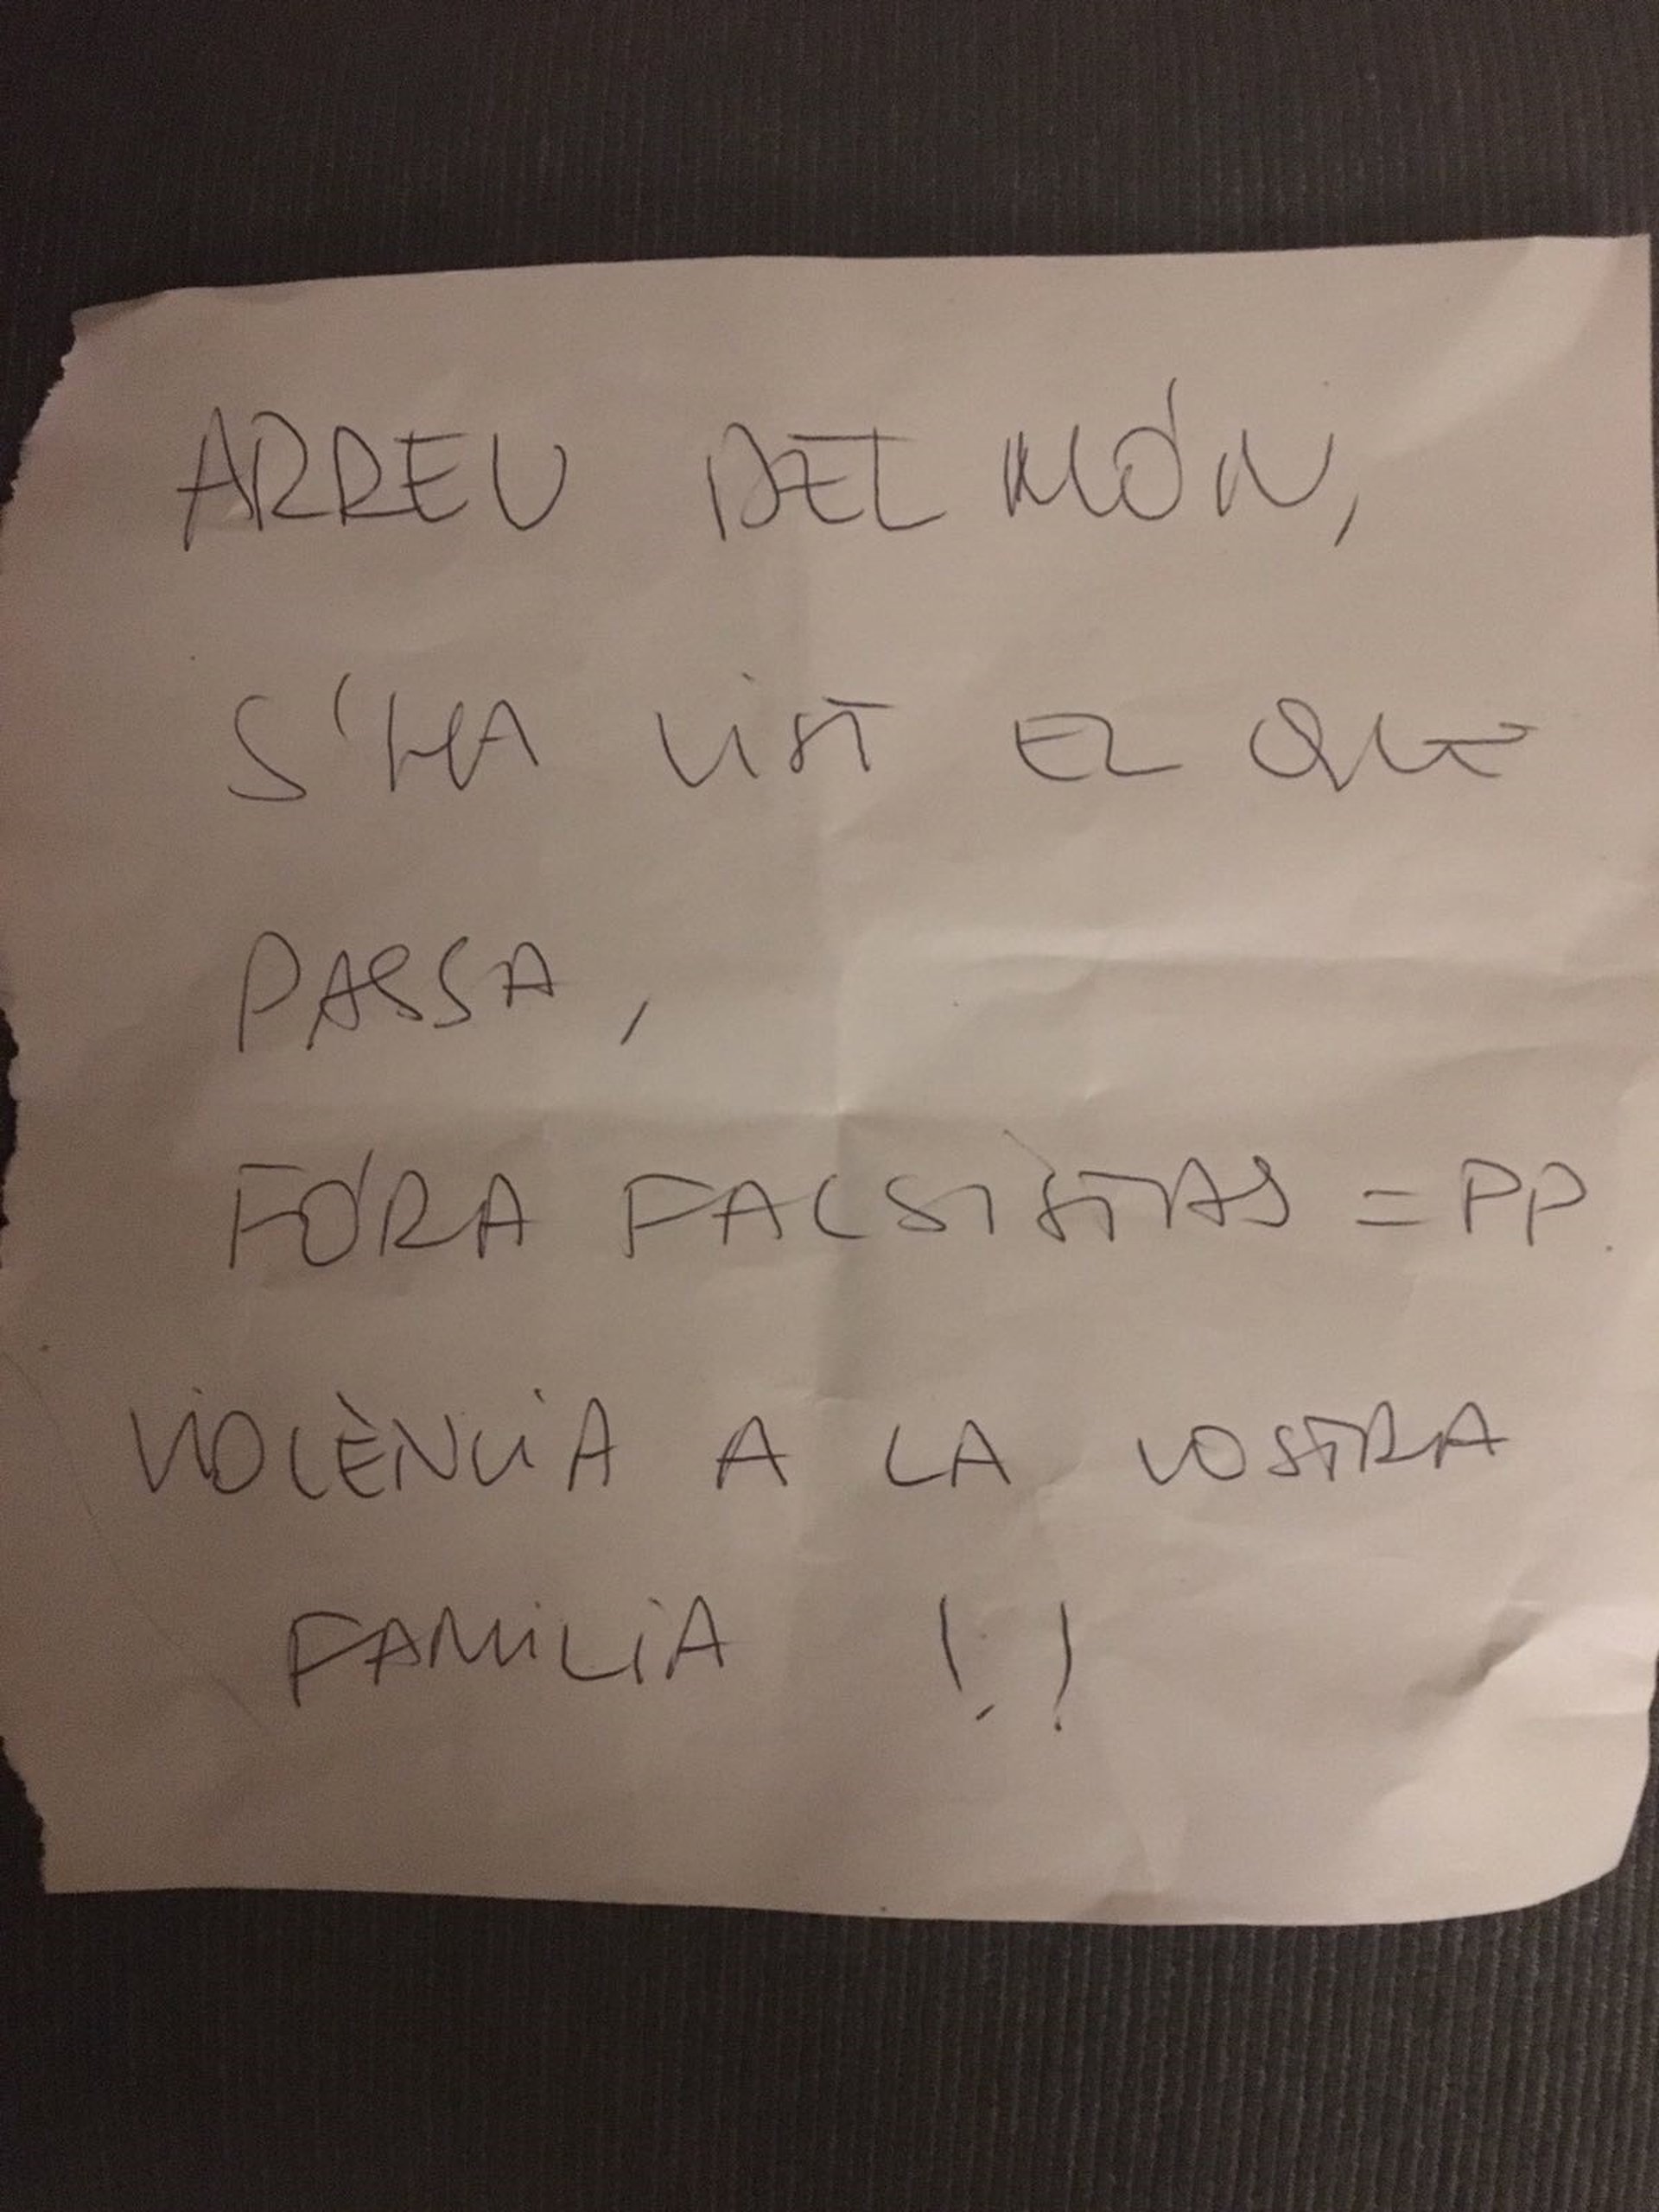 ARREU DEL MÓN,
S'HA VIST EL QUE
PASSA,
FÓRA FALSISTAS = PP
VIOLÈNCIA A LA VOSTRA
FAMILIA !!